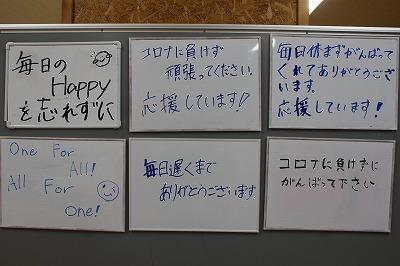 毎日の
Happy
を忘れずに
コロナに負けず
頑張ってください。
応援しています!
毎日休まずがんばって
くれてありがとうござい
ます。
応援しています!
One For
All!
All For
One!
毎日遅くまで
ありがとうございます。
コロナに負けずに
がんばって下さい